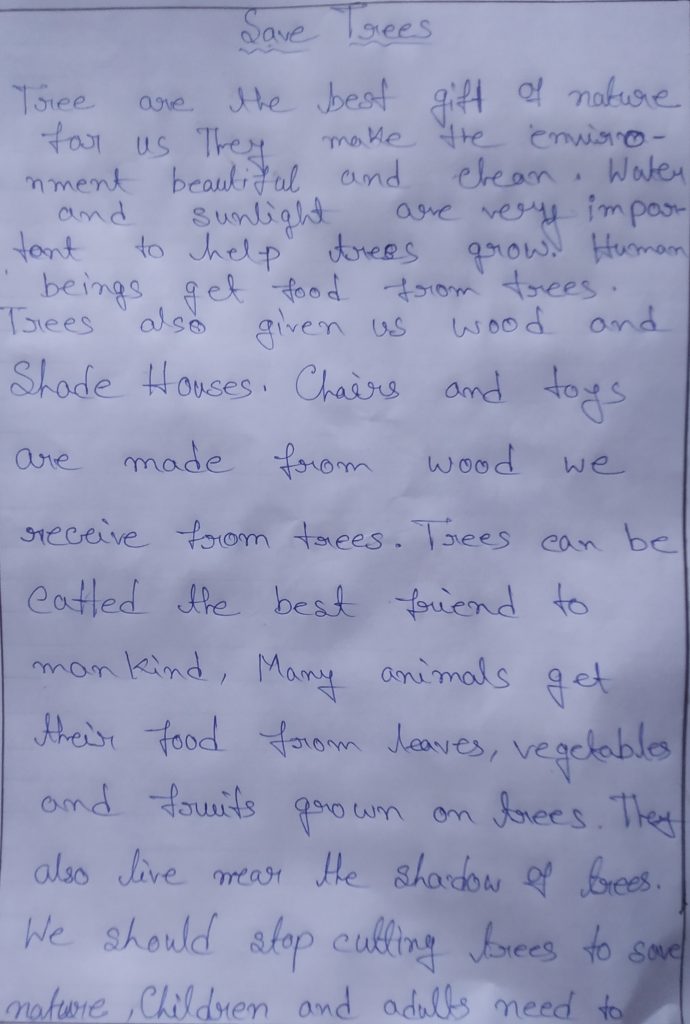 Save Trees
Tree are the best gift of nature
for us They make the enviro-
nment beautiful and clean. Water
and sunlight are very impor-
tant to help trees grow. Human
beings get food from trees.
Trees also given us wood and
Shade Houses. Chairs and toys
are made from wood we
receive from trees. Trees can be
called the best friend to
man kind, Many animals get
their food from leaves, vegetables
and fruits grown on trees. They
also live near the shadow of trees.
We should stop cutting trees to save
nature, Children and adults need to